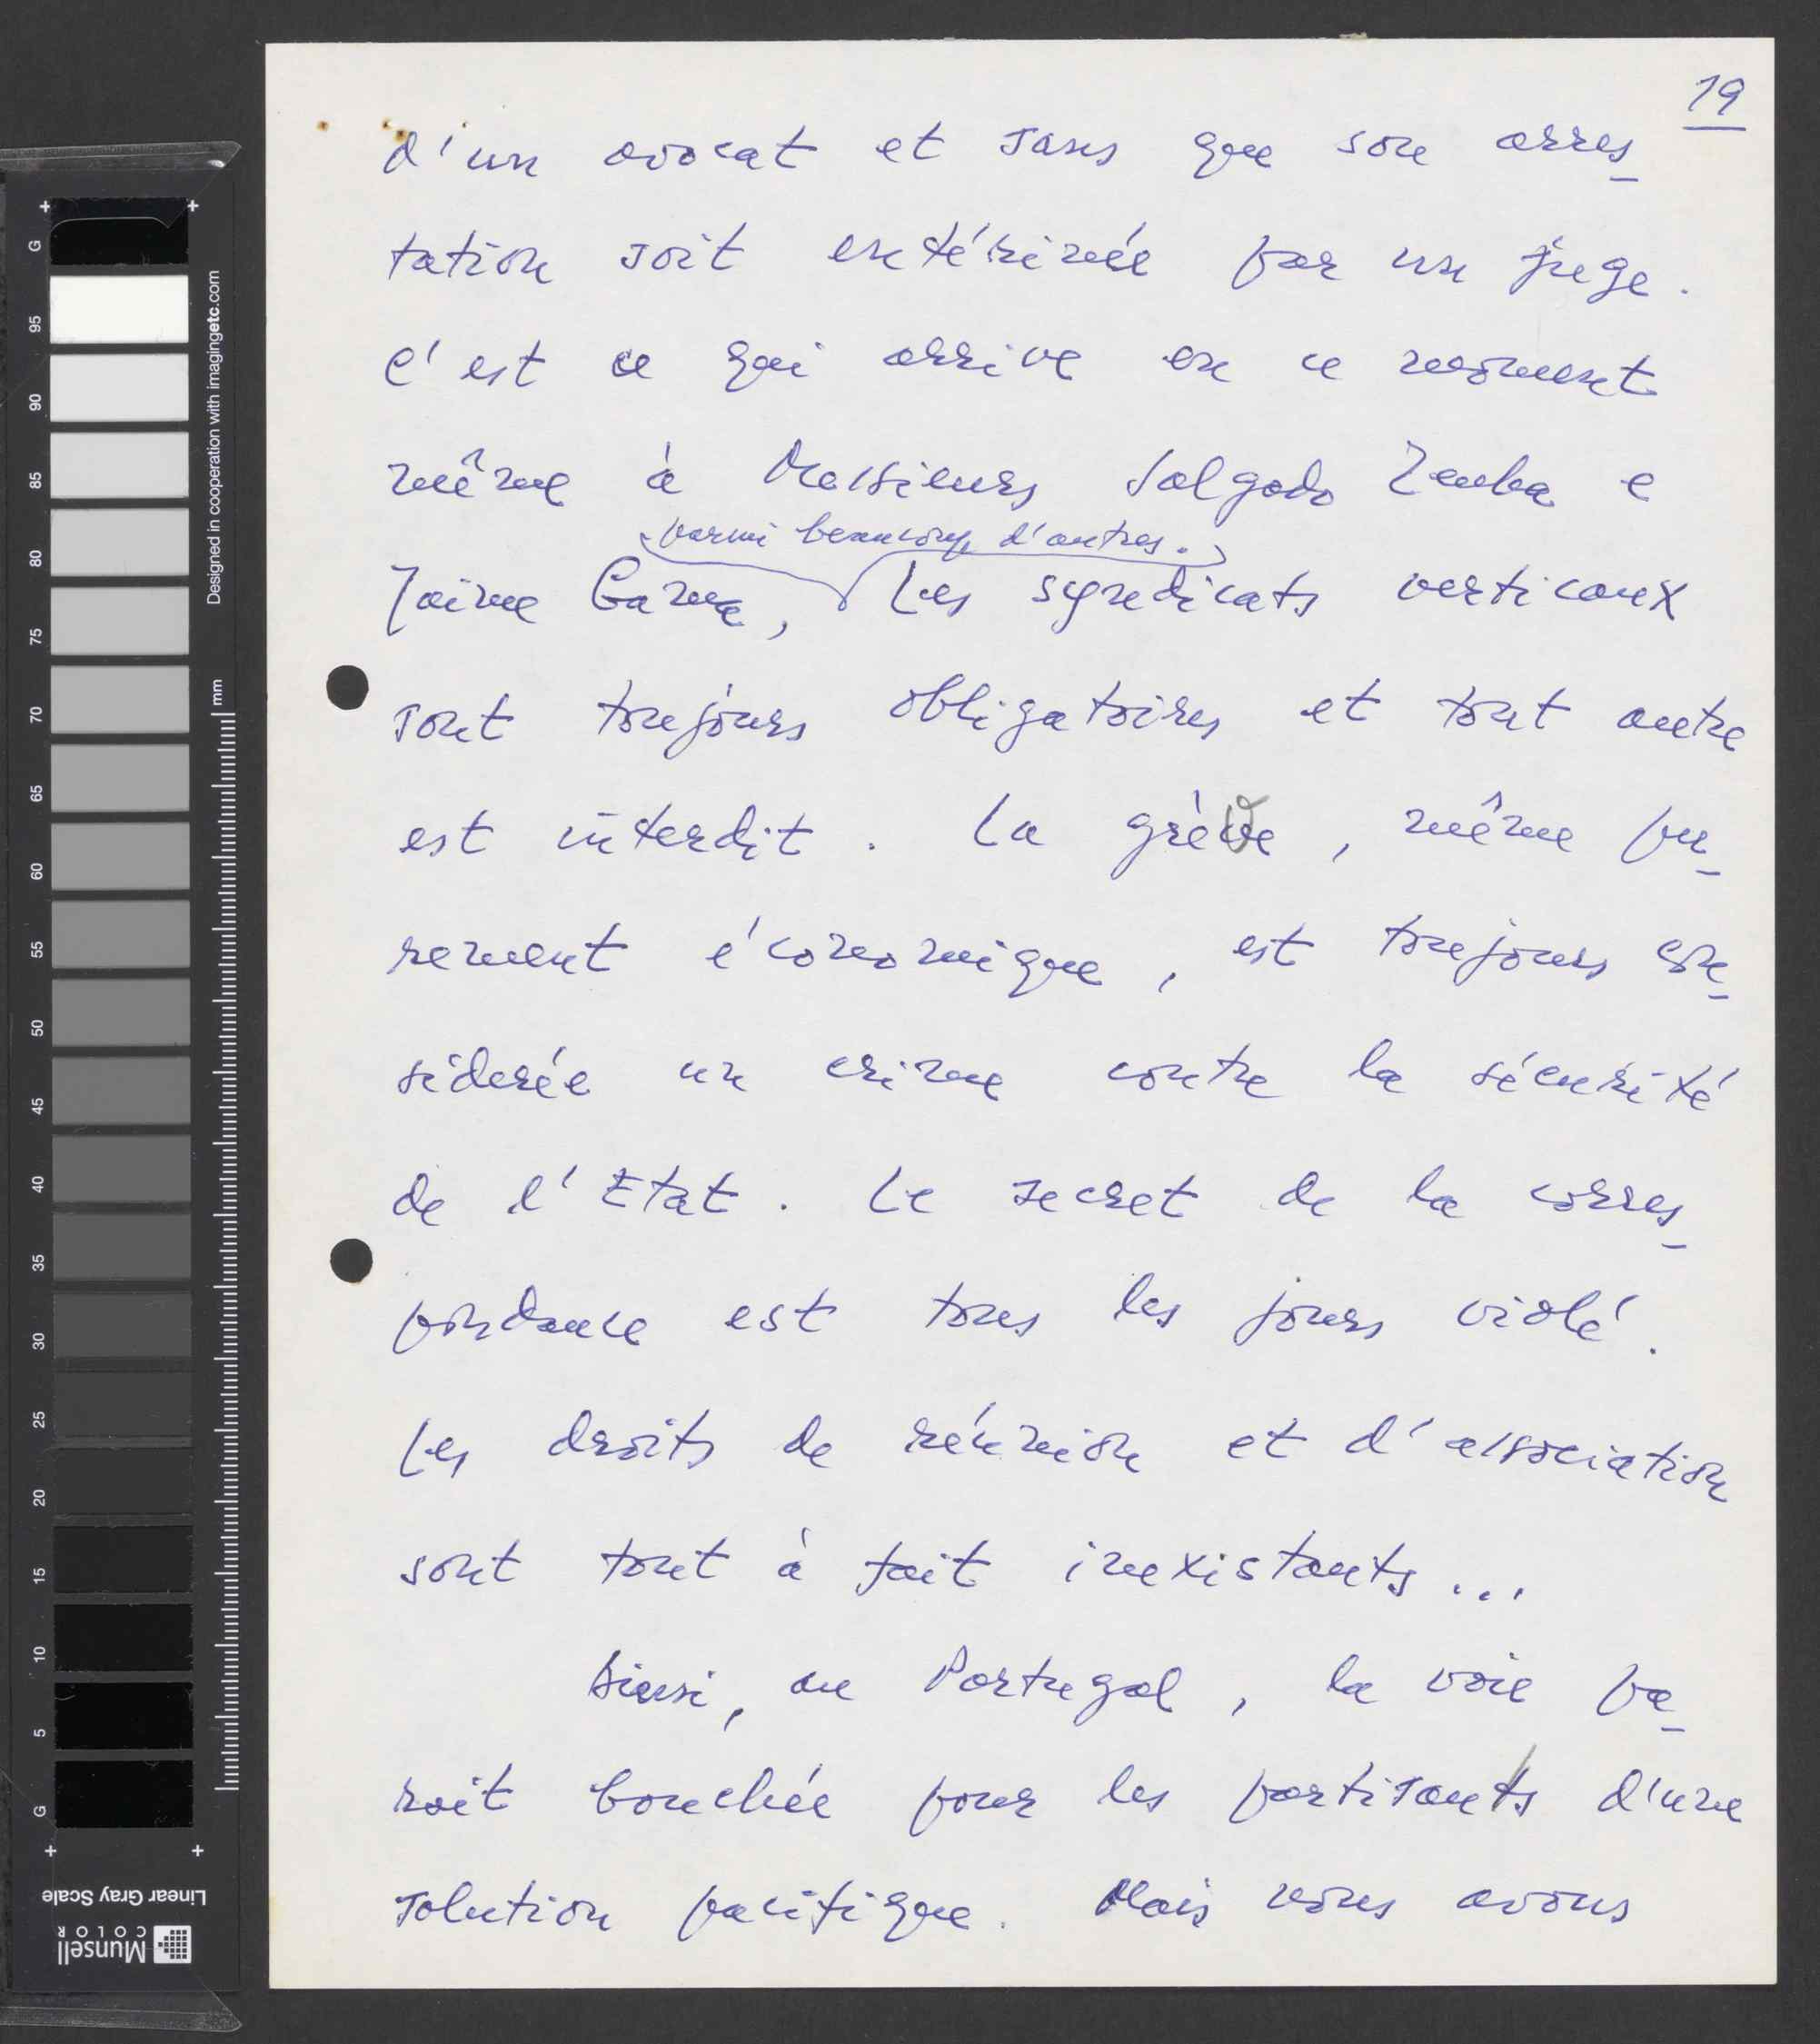 19
d'un avocat et sans que son arres_
tation soit entérinée par un juge.
C'est ce qui arrive en ce moment
même à Messieurs Salgado Zenha e
parmi beaucoup d'autres.
Jaime Gama, Les syndicats verticaux
sont toujours obligatoires et tout autre
est interdit. La grève, même pu_
rement économique, est toujours con_
siderée un crime contre la sécurité
de l'Etat. Le secret de la corres_
pondance est tous les jours violé.
Les droits de réunion et d'association
sont tout à fait inexistants...
Ainsi, au Portugal, la voie pa_
rait bouchée pour les partisants d'une
solution pacifique. Mais nous avons
G
95
90
85
80
75
70
65
60
55
50
45
40
35
30
25
20
15
10
5
G
mm
Designed in cooperation with imagingetc.com
Linear Gray Scale
Munsell
COLOR